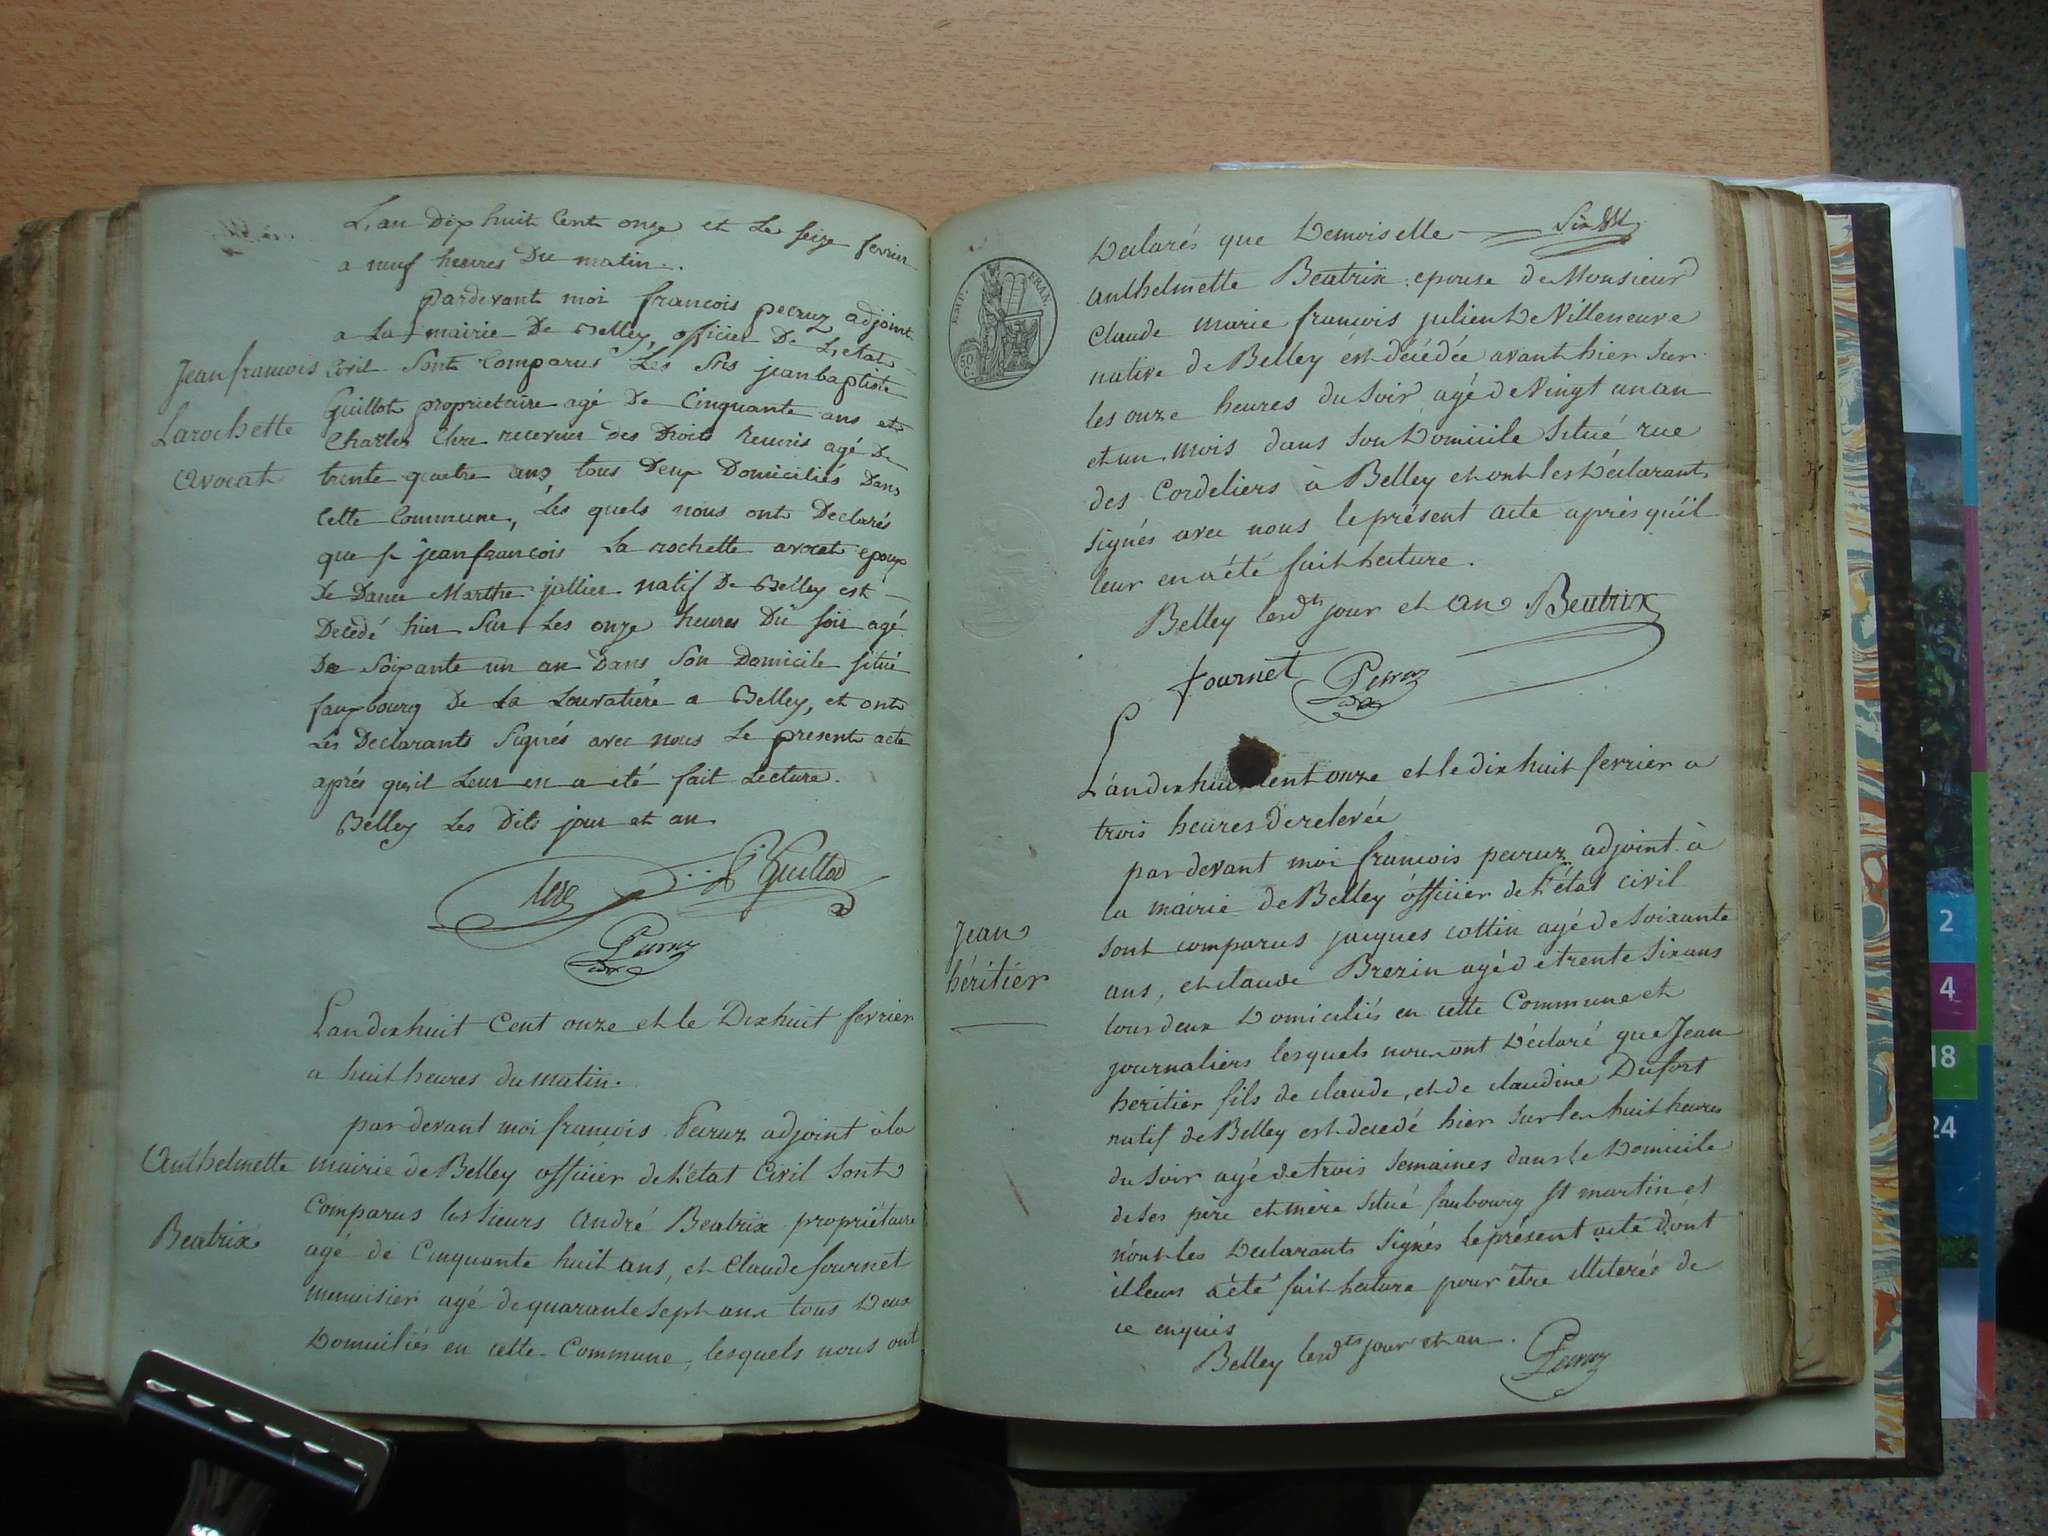 L'an dix huit Cent onze et Le seize fevrier
a neuf heures Du matin.
pardevant moi francois peeruz adjoint
a La mairie De Belley, officier De L'etat
Jean francois
Larochette
avocat
Civil Sont Comparus Les Srs jeanbaptiste
Guillot proprietaire agé De Cinquante ans et
Charles Clere receveur des Droits Reunis agé De
trente quatre ans, tous Deux Domiciliés Dans
Cette Commune, Les quels nous ont Declarés
que sr jeanfrancois La rochette avocat epoux
De Dame Marthe jallier natif De Belley est
Decedé hier Sur Les onze heures Du soir agé
De Soixante un an Dans Son Domicile situé
fauxbourg De La Louvatiére a Belley, et ont
Les Declarants Signés avec nous Le present acte
aprés qu'il Leur en a été fait Lecture.
Belley Les Dits jour et an
Guillot
L'an dix huit Cent onze et le Dix huit fevrier
a huit heures du matin.
Anthelmette
Beatrix
par devant moi francois Peeruz adjoint à la
mairie de Belley officier de l'état Civil Sont
Comparus les sieurs André Beatrix propriétaire
agé de Cinquante huit ans, et Claude fournet
menuisier agé de quarante sept ans tous Deux
Domiciliés en cette Commune, lesquels nous ont
EMP. FRAN.
50
C.
Declarés que Demoiselle
anthelmette Beatrix epouse de Monsieur
Claude marie francois julien De Villeneuve
native de Belley ést décédée avant hier sur
les onze heures du Soir agé de Vingt un an
et un mois dans son Domicile Situé rue
des Cordeliers à Belley et ont les Déclarants
signés avec nous le présent acte aprés qu'il
leur en a été fait lecture.
Belley lesdts jour et an Beatrix
fournet Peeruz
L'an dix huit Cent onze et le dix huit fevrier a
trois heures De relevée
par devant moi francois peeruz adjoint à
la mairie de Belley officier de l'état civil
Jean
héritier
sont comparus jacques cottin agé de soixante
ans, et claude Brezin agé de trente six ans
tous deux Domiciliés en cette Commune et
journaliers lesquels nous ont Déclaré que Jean
heritier fils de claude, et de claudine Dufort
natif de Belley est decedé hier sur les huit heures
du soir agé de trois semaines dans le Domicile
de ses père et mère Situé faubourg St martin et
n'ont les Declarants Signés le présent acte dont
il leurs a été fait lecture pour être illiterés de
ce enquis
Belley lesdts jour et an. Peeruz
2
4
18
24